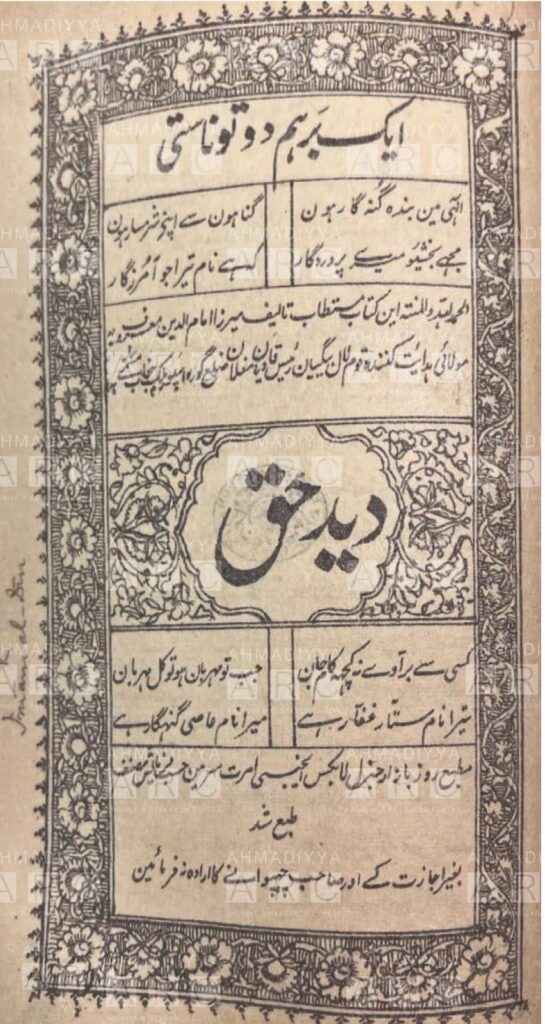 ایک برہم دوتو ناستی
الٰہی مین بندہ گنہ گار ہون
گناہون سے اپنی شرمسار ہون
مجھے بخشیو میرے پروردگار
کہ ہے نام تیرا جو آمرزگار
الحمد للہ والمنتہ این کتاب مستطاب تالیف میرزا امام الدین معروف بہ
مولائی ہدایت کنندہ قوم لال بیگیان رئیس قادیان مغلان ضلع گورداسپور ملک پنجاب
دید حق
کسی سے برآوے نہ کچھ کام جان
جب تو مہربان ہو تو کل مہربان
تیرا نام ستار غفار ہے
میرا نام عاصی گنہگار ہے
مطبع روز بازار جنرل لا بکس ایجنسی امرت سر مین حسب فرمائش مصنف
طبع شد
بغیر اجازت کے اور صاحب چھپوانے کا ارادہ نہ فرمائین
Imam-al-Din
AHMADIYYA
ARC